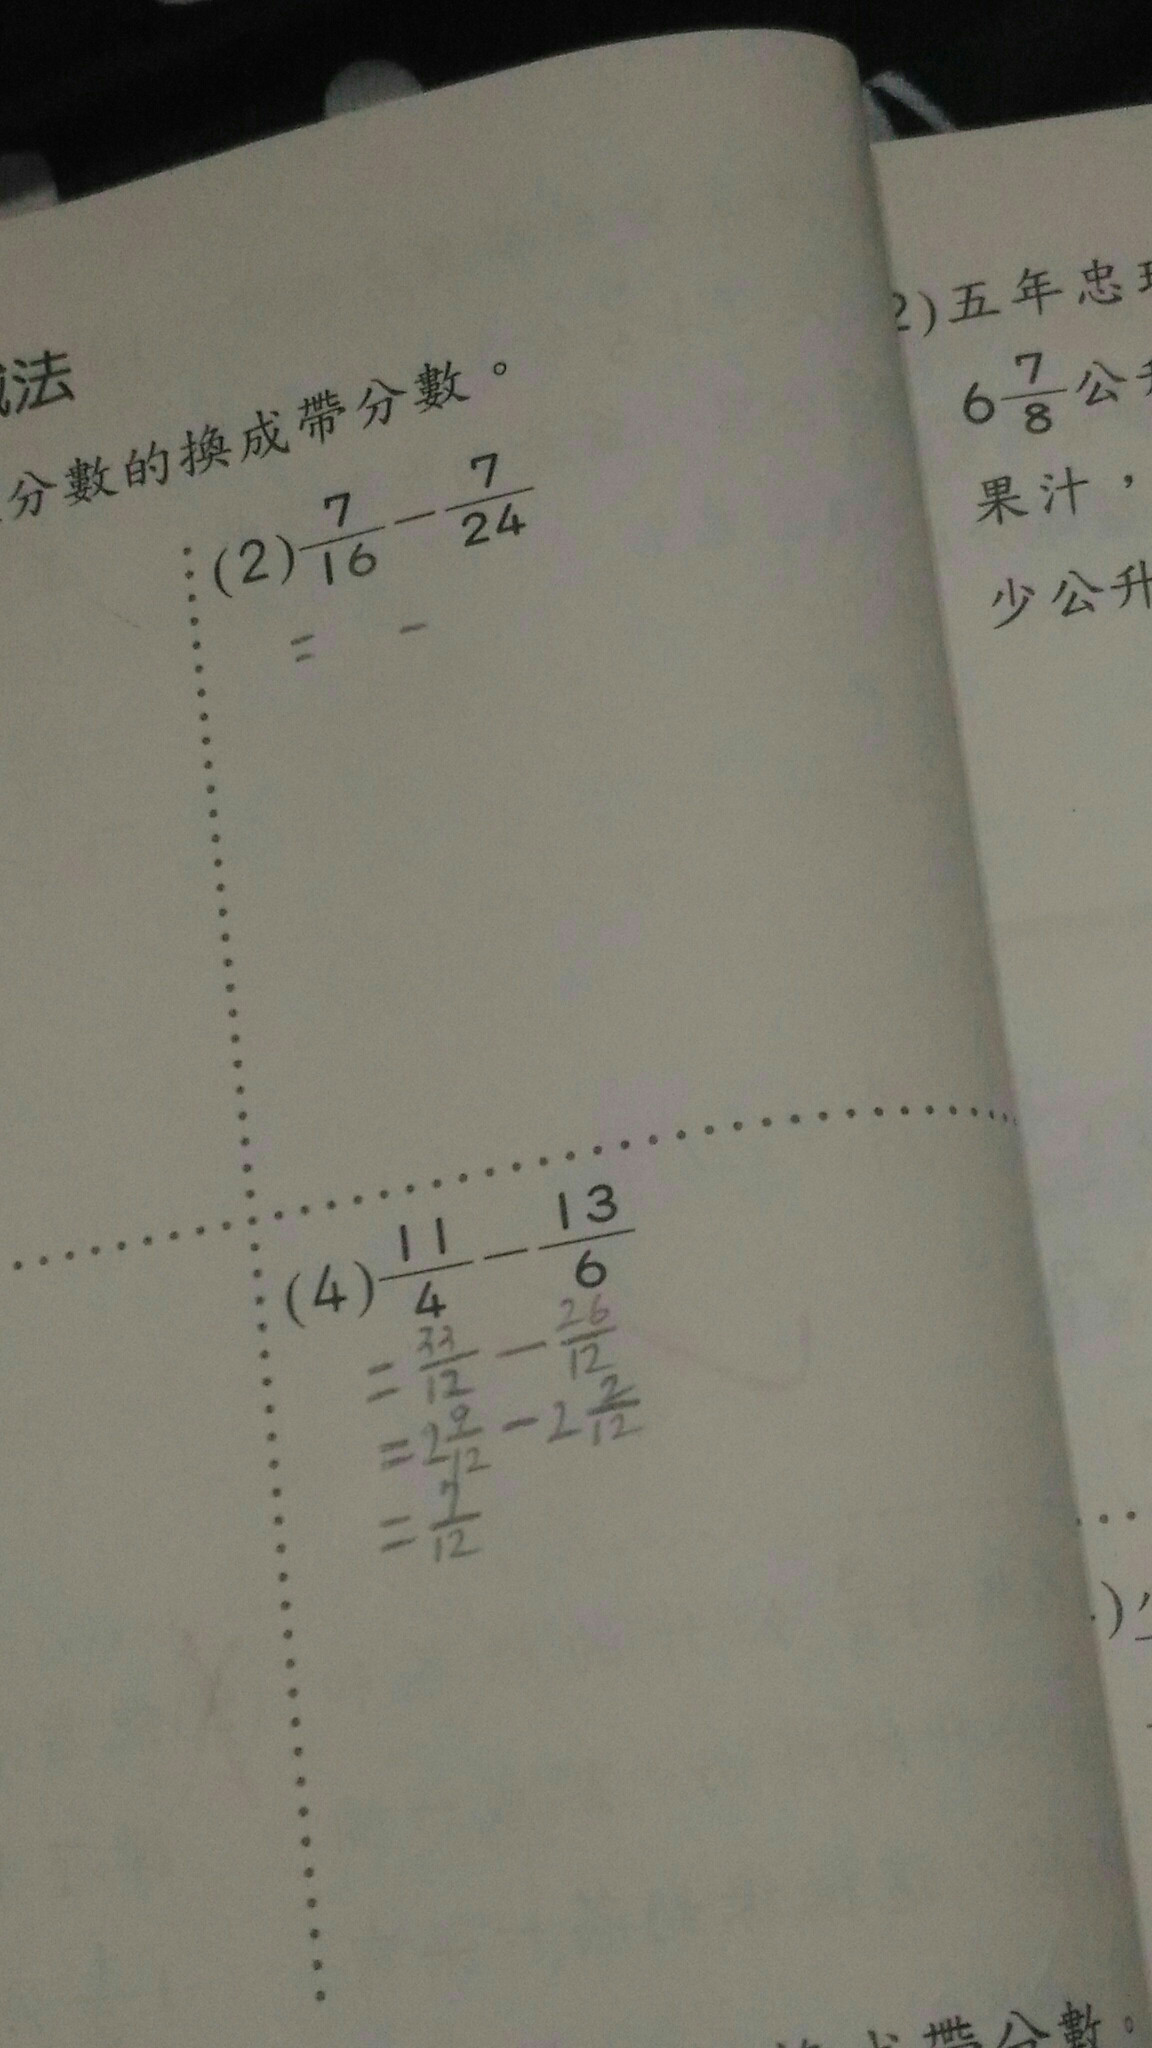 法
分數的換成帶分數。
(2) 7/16 - 7/24
= -
(4) 11/4 - 13/6
= 33/12 - 26/12
= 2 9/12 - 2 2/12
= 7/12
2)五年忠
6 7/8 公升
果汁，
少公升
)
帶分數。